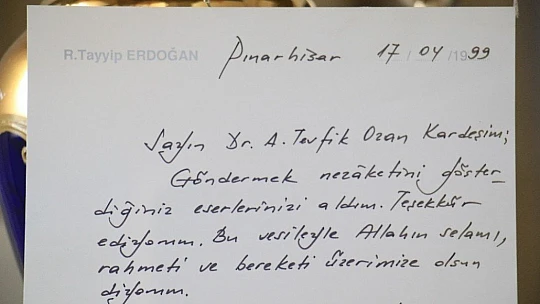 R.Tayyip ERDOĞAN Pınarhisar 17 / 04 / 1999
Sayın Dr. A. Tevfik Ozan Kardeşim;
Göndermek nezâketini göster-
diğiniz eserlerinizi aldım. Teşekkür
ediyorum. Bu vesileyle Allahın selamı,
rahmeti ve bereketi üzerimize olsun
diyorum.